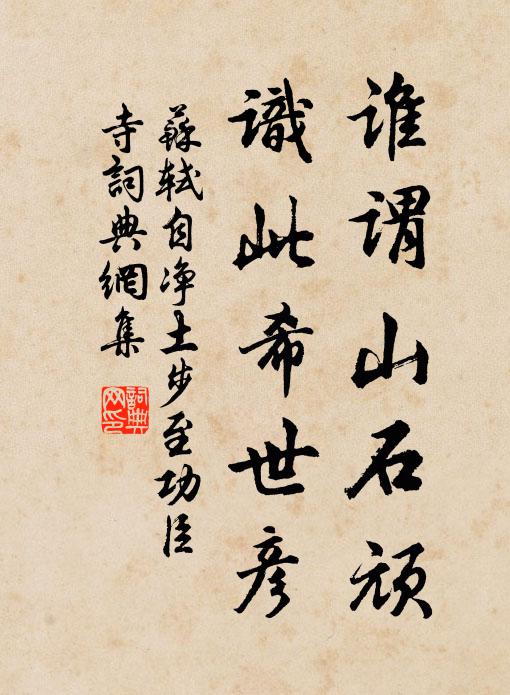 誰謂山石頑
識此希世彦
蘇軾自净土步至功臣
寺詞典網集
詞典网印